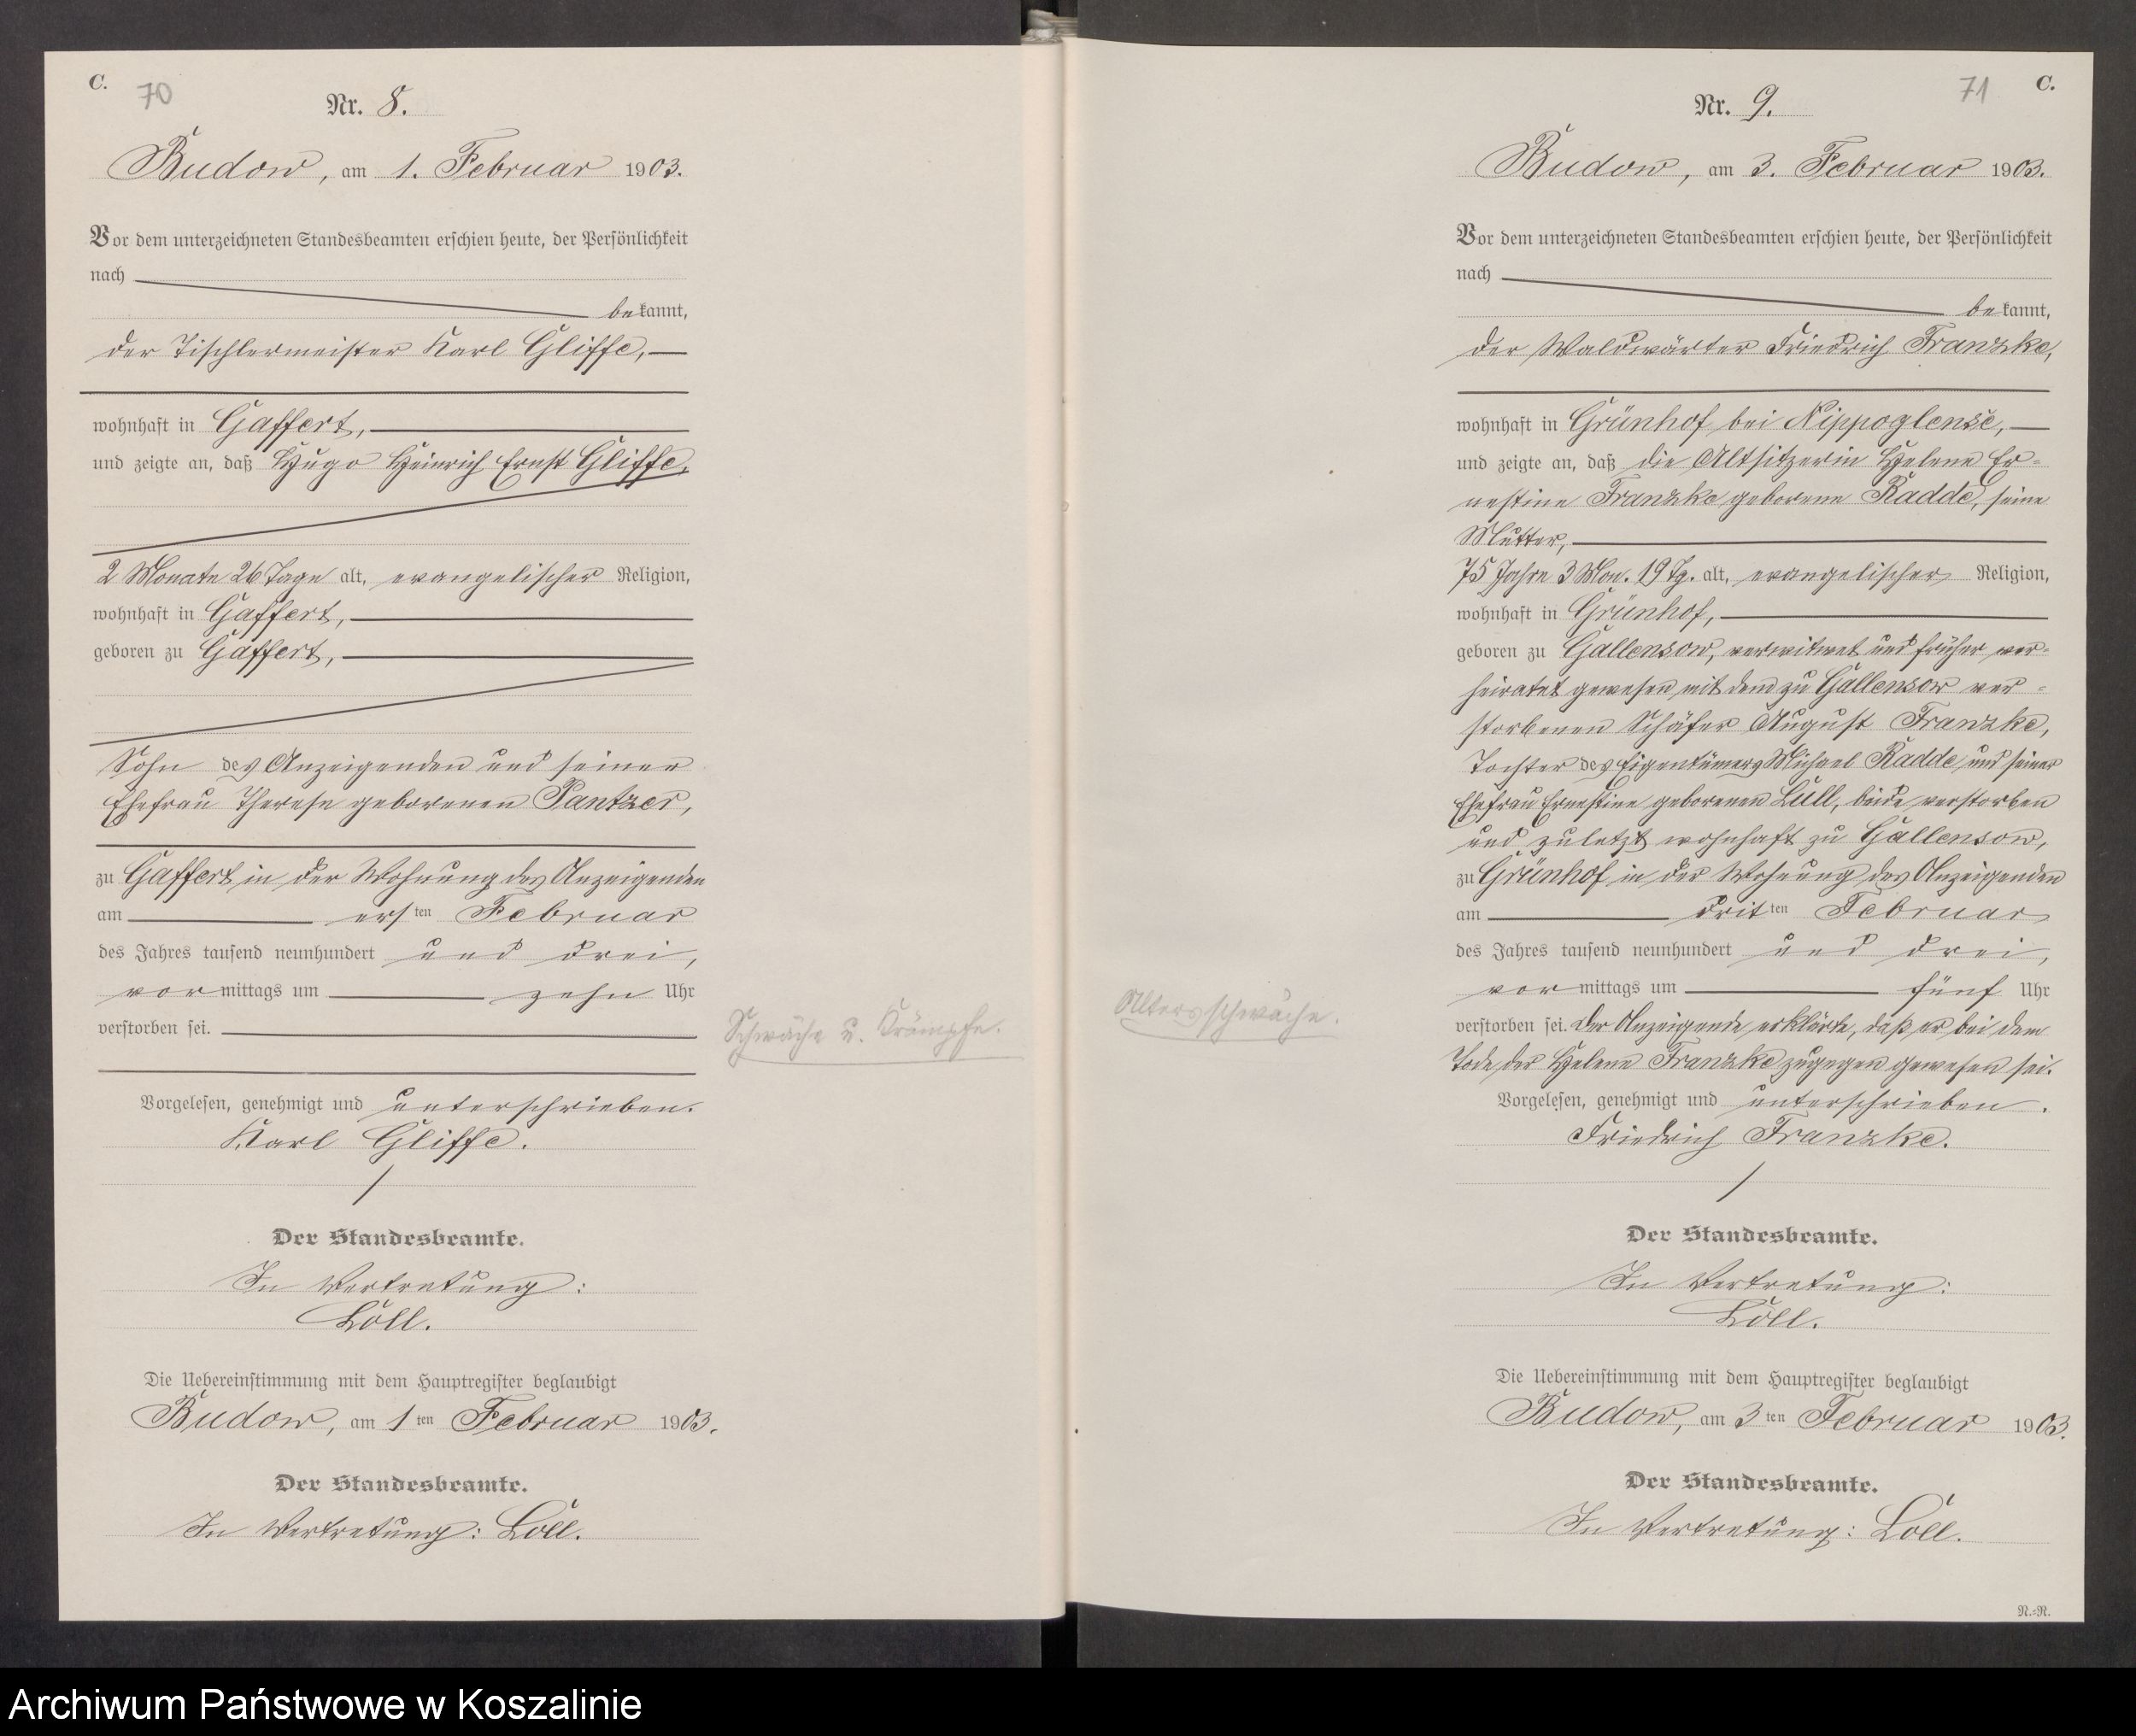 C. 70
Nr. 8.
Budow, am 1. Februar 1903.
Vor dem unterzeichneten Standesbeamten erschien heute, der Persönlichkeit
nach
bekannt,
der Tischlermeister Karl Gliffe,
wohnhaft in Gaffert,
und zeigte an, daß Hugo Heinrich Ernst Gliffe,
2 Monate 26 Tage alt, evangelischer Religion,
wohnhaft in Gaffert,
geboren zu Gaffert,
Sohn des Anzeigenden und seiner
Ehefrau Therese geborenen Pantzer,
zu Gaffert in der Wohnung des Anzeigenden
am ersten Februar
des Jahres tausend neunhundert und drei,
vormittags um zehn Uhr
verstorben sei.
Schwäche u. Krämpfe.
Vorgelesen, genehmigt und unterschrieben.
Karl Gliffe.
Der Standesbeamte.
In Vertretung:
Löll.
Die Uebereinstimmung mit dem Hauptregister beglaubigt
Budow, am 1ten Februar 1903.
Der Standesbeamte.
In Vertretung: Löll.
71 C.
Nr. 9.
Budow, am 3. Februar 1903.
Vor dem unterzeichneten Standesbeamten erschien heute, der Persönlichkeit
nach
bekannt,
der Waldwärter Friedrich Franzke,
wohnhaft in Grünhof bei Nippoglense,
und zeigte an, daß die Altsitzerin Helene Er-
nestine Franzke geborene Radde, seine
Mutter,
75 Jahre 3 Mon. 19 Tg. alt, evangelischer Religion,
wohnhaft in Grünhof,
geboren zu Gallensow, verwitwet und früher ver-
heiratet gewesen mit dem zu Gallensow ver-
storbenen Schäfer August Franzke,
Tochter des Eigentümers Michael Radde und seiner
Ehefrau Ernestine geborenen Lüll, beide verstorben
und zuletzt wohnhaft zu Gallensow,
zu Grünhof in der Wohnung des Anzeigenden
am dritten Februar
des Jahres tausend neunhundert und drei,
vormittags um fünf Uhr
Altersschwäche.
verstorben sei. Der Anzeigende erklärte, daß er bei dem
Tode der Helene Franzke zugegen gewesen sei.
Vorgelesen, genehmigt und unterschrieben.
Friedrich Franzke.
Der Standesbeamte.
In Vertretung:
Löll.
Die Uebereinstimmung mit dem Hauptregister beglaubigt
Budow, am 3ten Februar 1903.
Der Standesbeamte.
In Vertretung: Löll.
N.=N.
Archiwum Państwowe w Koszalinie